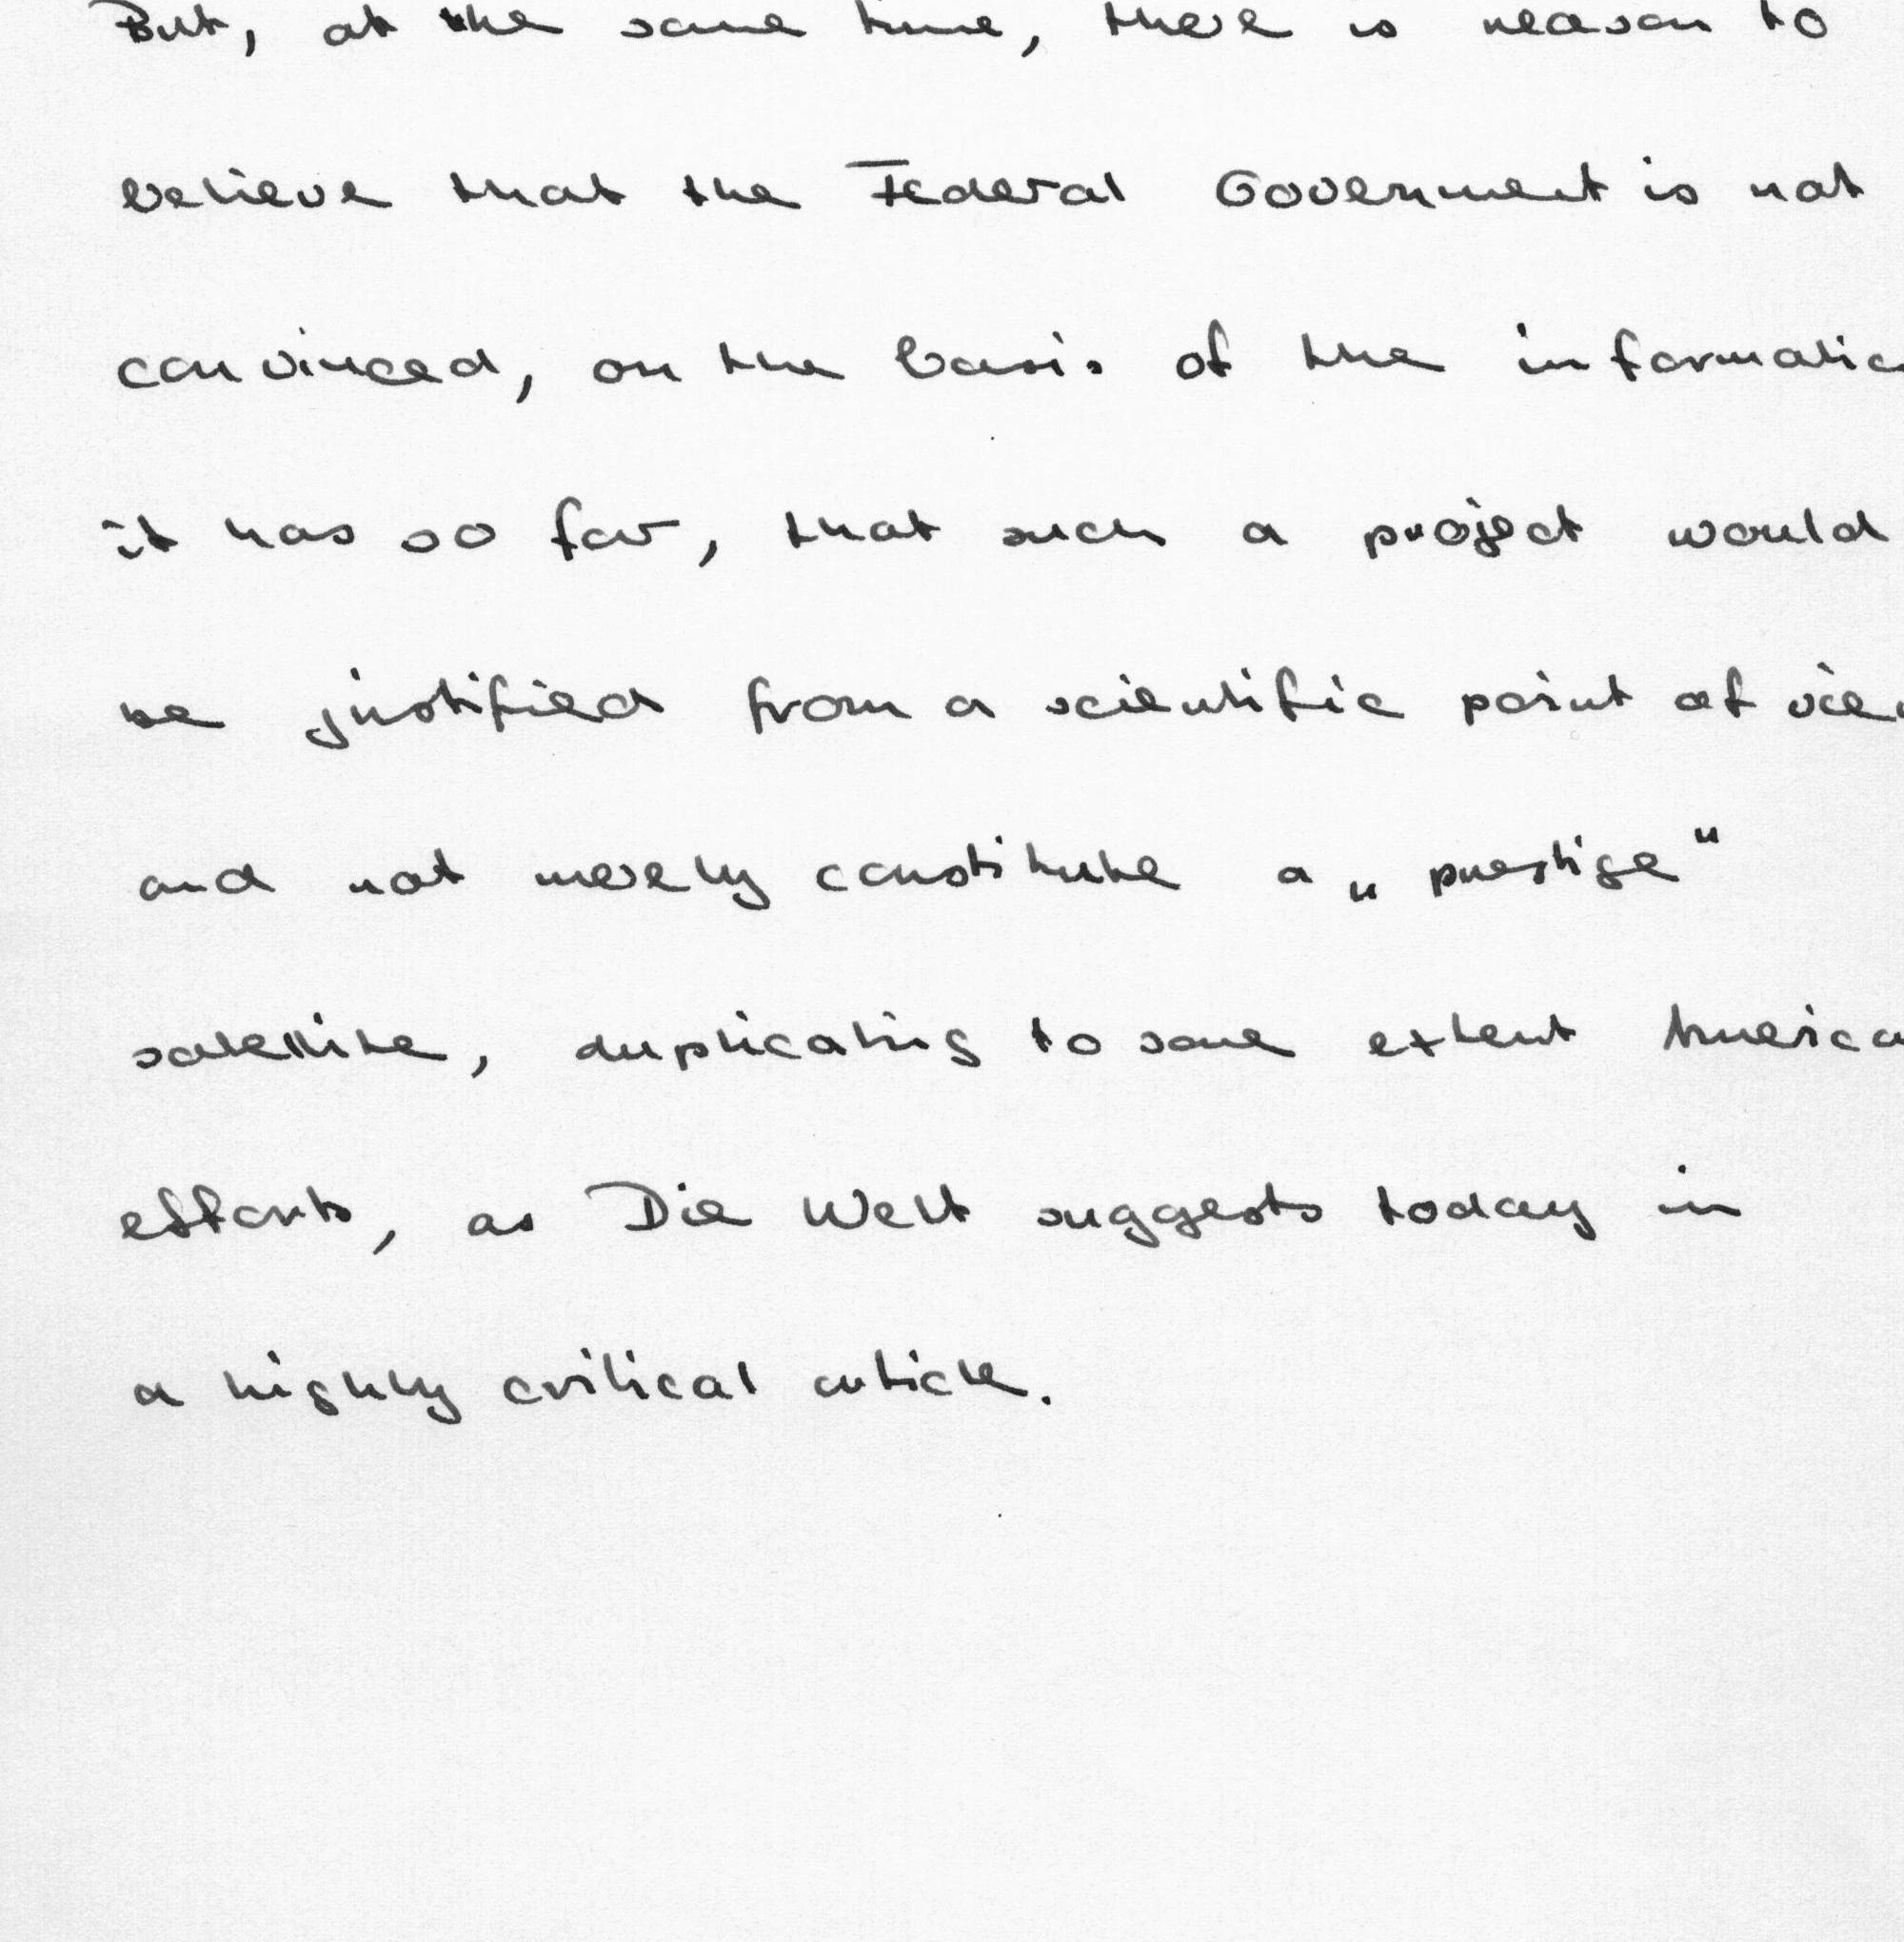 But, at the same time, there is reason to
believe that the Federal Government is not
convinced, on the basis of the informatio
it has so far, that such a project would
be justified from a scientific point of vie
and not merely constitute a „prestige"
satellite, duplicating to some extent America
efforts, as Die Welt suggests today in
a highly critical article.